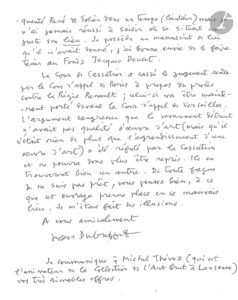 quenté René de Solier dans un temps (lointain) mais je
n'ai jamais réussi à savoir où se situait au
juste son lieu. Je possède un manuscrit de lui
qu'il m'avait donné, j'ai bonne envie de le faire
tenir au Fonds Jacques Doucet.
La Cour de Cassation a cassé le jugement rendu
par la Cour d'appel de Paris à propos du procès
contre la Régie Renault ; celui-ci va être mainte-
nant porté devant la Cour d'appel de Versailles.
L'argument saugrenu que le monument détruit
n'avait pas qualité d'œuvre d'art (mais qu'il
n'était rien de plus que l'agrandissement d'une
œuvre d'art) a été réfuté par la Cassation
et ne pourra donc plus être repris. Ils en
trouveront bien un autre. De toute façon
je ne suis pas prêt, vous pensez bien, à ce
que cet ouvrage prenne place en ce mauvais
lieu. Je m'étais fait des illusions.
A vous amicalement
Jean Dubuffet
Je communique à Michel Thévoz (qui est
l'animateur de la Collection de l'Art brut à Lausanne)
vos très aimables offres.